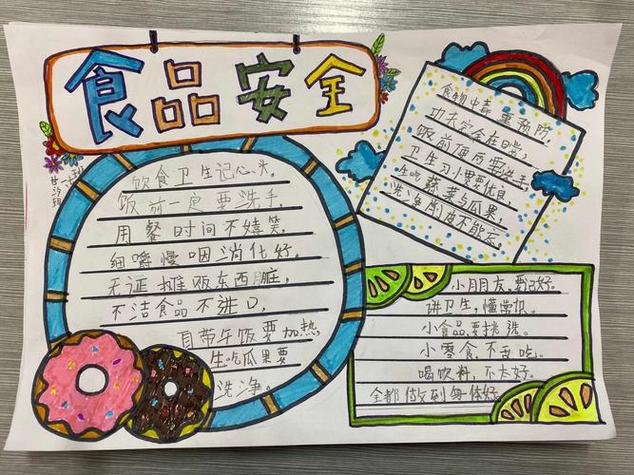 食品安全
饮食卫生记心头,
饭前一定要洗手,
用餐时间不嬉笑,
细嚼慢咽消化好。
无证摊饭东西脏,
不洁食品不进口,
自带午饭要加热
生吃瓜果要
洗净。
食物中毒重预防,
功夫完全在日常,
饭前便后要洗手,
卫生习惯要优良,
生吃蔬菜与瓜果,
洗净削皮不能忘。
小朋友,要记好。
讲卫生,懂常识。
小食品要挑选。
小零食,不乱吃。
喝饮料,不大好。
全都做到身体好